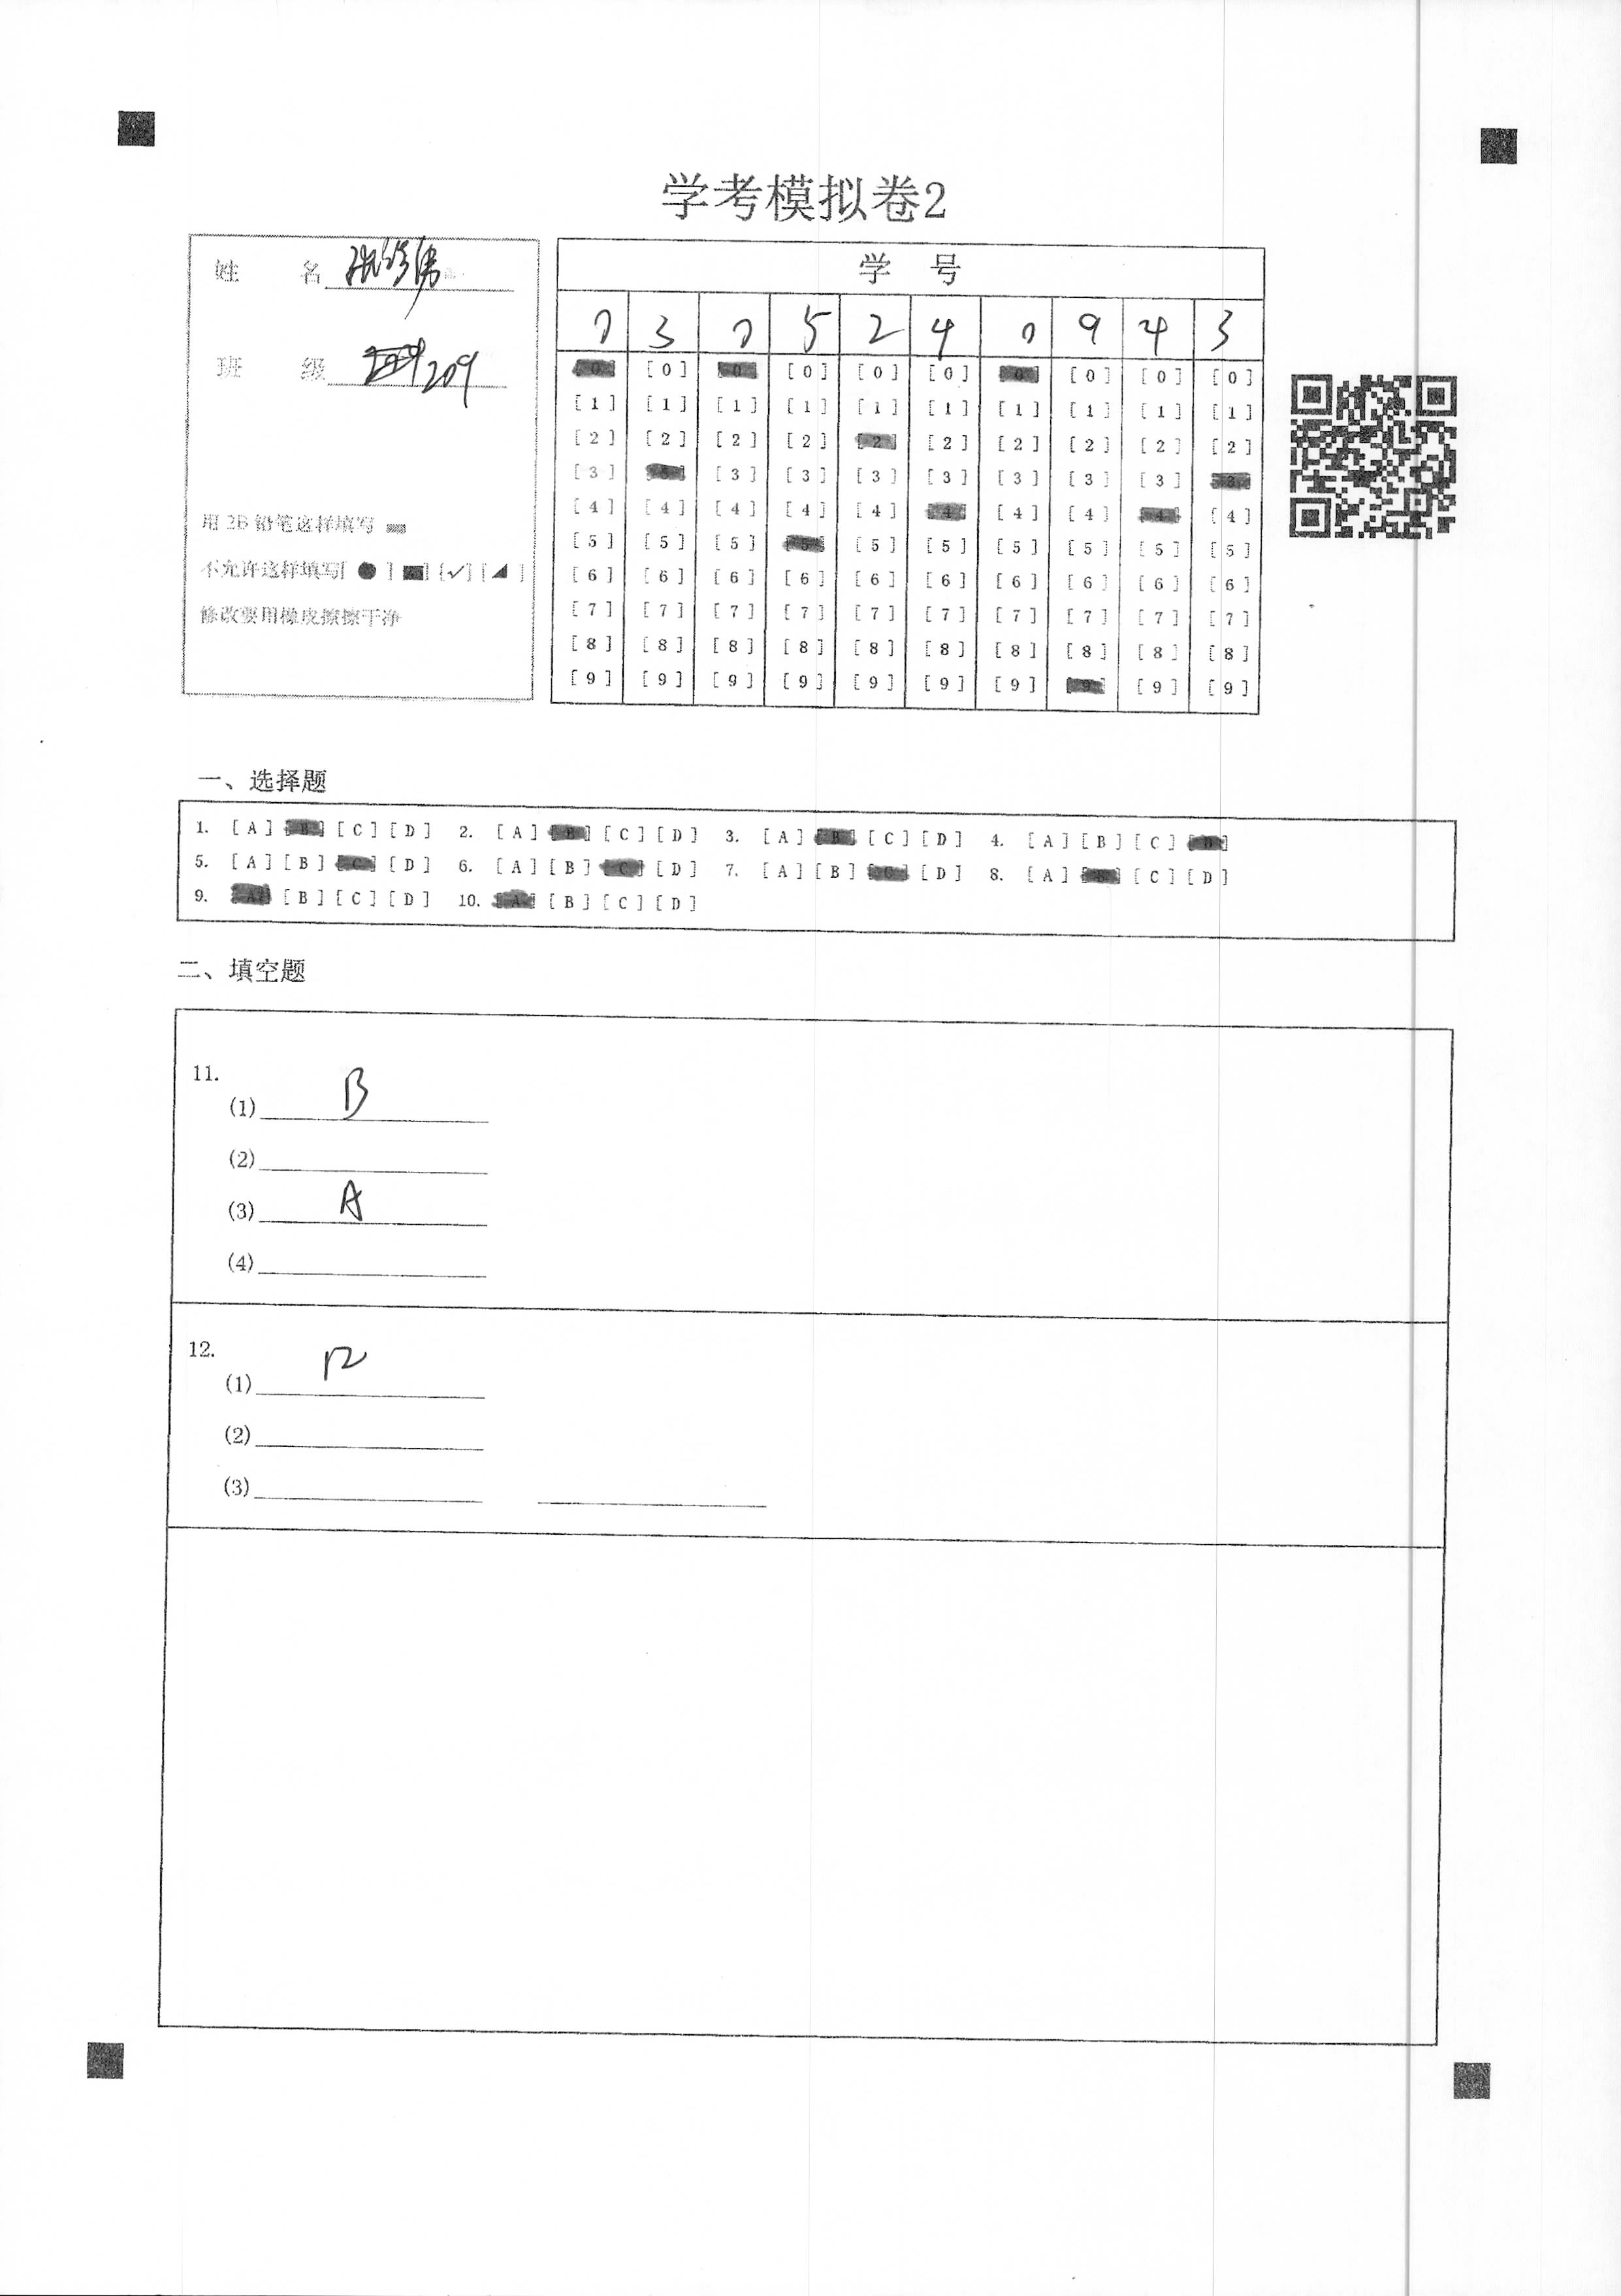 学考模拟卷2
姓 名
班 级 209
用 2B 铅笔这样填写
不允许这样填写[ ● ] [■] [✓] [◢ ]
修改要用橡皮擦擦干净
学 号
0 3 0 5 2 4 0 9 4 3
[0] [0] [0] [0] [0] [0] [0] [0] [0] [0]
[1] [1] [1] [1] [1] [1] [1] [1] [1] [1]
[2] [2] [2] [2] [2] [2] [2] [2] [2] [2]
[3] [3] [3] [3] [3] [3] [3] [3] [3] [3]
[4] [4] [4] [4] [4] [4] [4] [4] [4] [4]
[5] [5] [5] [5] [5] [5] [5] [5] [5] [5]
[6] [6] [6] [6] [6] [6] [6] [6] [6] [6]
[7] [7] [7] [7] [7] [7] [7] [7] [7] [7]
[8] [8] [8] [8] [8] [8] [8] [8] [8] [8]
[9] [9] [9] [9] [9] [9] [9] [9] [9] [9]
一、选择题
1. [A] [B] [C] [D] 2. [A] [B] [C] [D] 3. [A] [B] [C] [D] 4. [A] [B] [C] [D]
5. [A] [B] [C] [D] 6. [A] [B] [C] [D] 7. [A] [B] [C] [D] 8. [A] [B] [C] [D]
9. [A] [B] [C] [D] 10. [A] [B] [C] [D]
二、填空题
11.
(1) B
(2)
(3) A
(4)
12.
(1)
(2)
(3)